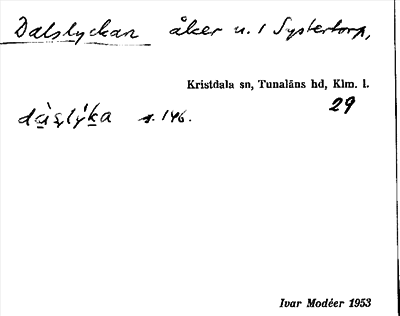 Dalslyckan åker u. 1 Systertorp,
Kristdala sn, Tunaläns hd, Klm. l.
29
s. 146.
Ivar Modéer 1953